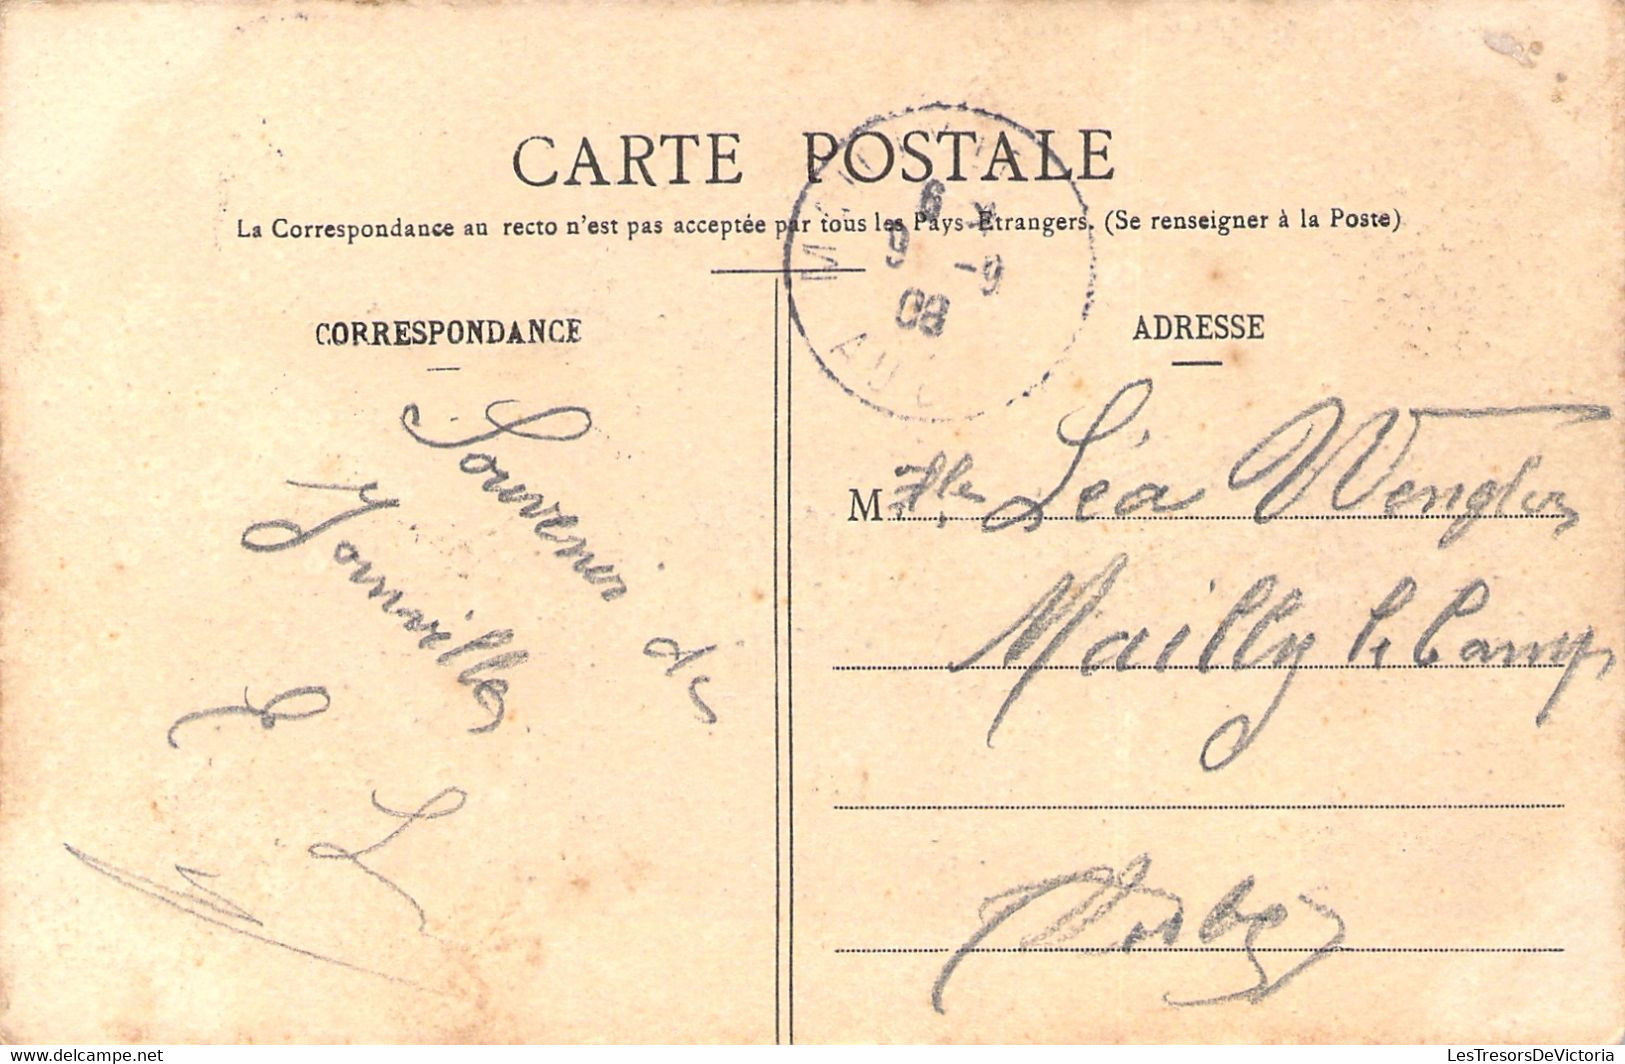 CARTE POSTALE
La Correspondance au recto n'est pas acceptée par tous les Pays Etrangers. (Se renseigner à la Poste)
CORRESPONDANCE
Souvenir de
Joinville
E L
ADRESSE
Mlle Léa Wengler
Mailly le Camp
Aube
6
9 -9
08
AUBE
LesTresorsDeVictoria
www.delcampe.net